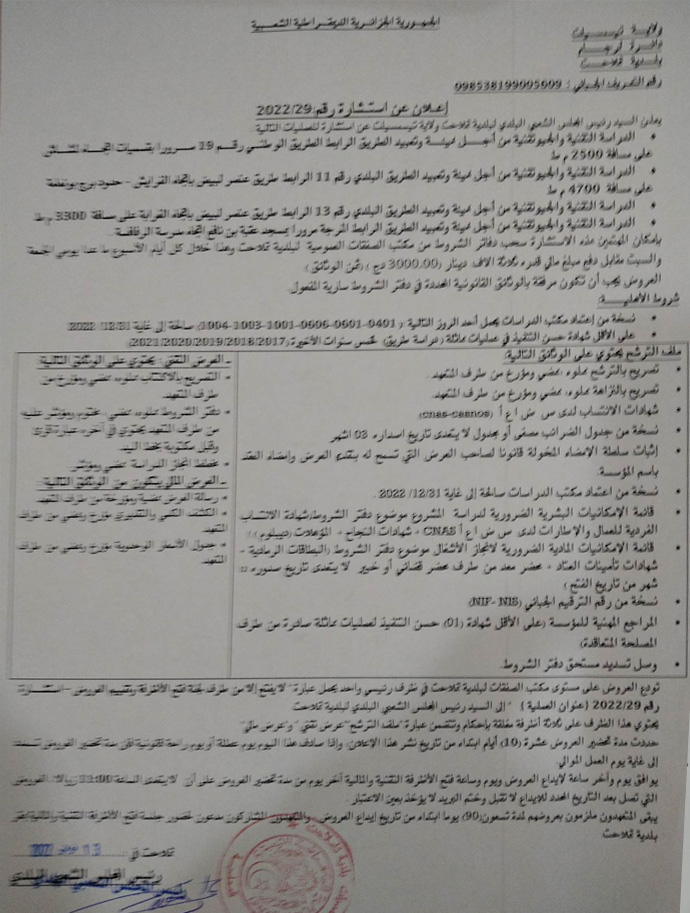 الجمهورية الجزائرية الديمقراطية الشعبية
ولاية تيسمسيلت
دائرة لرجام
بلدية تملاحت
رقم التعريف الجبائي : 098538199005009
إعلان عن استشارة رقم 2022/29
يعلن السيد رئيس المجلس الشعبي البلدي لبلدية تملاحت ولاية تيسمسيلت عن استشارة للعمليات التالية:
• الدراسة التقنية والجيوتقنية من أجل تهيئة وتعبيد الطريق الرابط الطريق الوطني رقم 19 مرورا
على مسافة 2500 م ط
• الدراسة التقنية والجيوتقنية من أجل تهيئة وتعبيد الطريق البلدي رقم 11 الرابط طريق عنصر لبيض باتجاه القرايش – حدود برج بونعامة
على مسافة 4700 م ط
• الدراسة التقنية والجيوتقنية من أجل تهيئة وتعبيد الطريق البلدي رقم 13 الرابط طريق عنصر لبيض باتجاه القرابة على مسافة 3300 م ط
• الدراسة التقنية والجيوتقنية من أجل تهيئة وتعبيد الطريق البلدي الرابط المرجة مرورا بمسجد عقبة بن نافع اتجاه مدرسة
بإمكان المهتمين بهذه الاستشارة سحب دفاتر الشروط من مكتب الصفقات العمومية لبلدية تملاحت وهذا خلال كل أيام الأسبوع ما عدا يومي الجمعة
والسبت مقابل دفع مبلغ مالي قدره ثلاثة الاف دينار (3000.00 دج) (ثمن الوثائق)
العروض يجب أن تكون مرفقة بالوثائق القانونية المحددة في دفتر الشروط سارية المفعول.
شروط الاهلية:
• نسخة من إعتماد مكتب الدراسات يحمل أحد الرموز التالية (0401-0601-0606-1001-1003-1004) صالحة إلى غاية 2022/12/31
• على الأقل شهادة حسن التنفيذ في عمليات مماثلة (دراسة طريق) لخمس سنوات الأخيرة (2021/2020/2019/2018/2017)
ملف الترشح يحتوي على الوثائق التالية:
• تصريح بالترشح مملوء، ممضي ومؤرخ من طرف المتعهد.
• تصريح بالنزاهة مملوء، ممضي ومؤرخ من طرف المتعهد.
• شهادات الانتساب لدى س ض إ ع أ (cnas-casnos)
• نسخة من جدول الضرائب مصفى أو مجدول لا يتعدى تاريخ اصداره 03 اشهر
• إثبات سلطة الامضاء المخولة قانونا لصاحب العرض التي تسمح له بتقديم العرض وإمضاء العقد
باسم المؤسسة.
• نسخة من اعتماد مكتب الدراسات صالحة إلى غاية 2022/12/31.
• قائمة الإمكانيات البشرية الضرورية لدراسة المشروع موضوع دفتر الشروط(شهادة الانتساب
الفردية للعمال والإطارات لدى س ض إ ع أ CNAS + شهادات النجاح + المؤهلات (ديبلوم))
• قائمة الإمكانيات المادية الضرورية لانجاز الأشغال موضوع دفتر الشروط (البطاقات الرمادية +
شهادات تأمينات العتاد + محضر معد من طرف محضر قضائي أو خبير لا يتعدى تاريخ صدوره
شهر من تاريخ الفتح)
• نسخة من رقم الترقيم الجبائي (NIF- NIS)
• المراجع المهنية للمؤسسة (على الأقل شهادة (01) حسن التنفيذ لعمليات مماثلة صادرة من طرف
المصلحة المتعاقدة)
• وصل تسديد مستحق دفتر الشروط.
ـ العرض التقني : يحتوي على الوثائق التالية
• التصريح بالاكتتاب مملوء، ممضي ومؤرخ من
طرف المتعهد.
• دفتر الشروط مملوء، ممضي، مختوم ومؤشر عليه
من طرف المتعهد يحتوي في آخره عبارة قرئ
وقبل مكتوبة بخط اليد.
• مخطط انجاز الدراسة ممضي ومؤشر
ـ العرض المالي يتكون من الوثائق التالية
• رسالة العرض ممضية ومؤرخة من طرف المتعهد
• الكشف الكمي والتقديري مؤرخ وممضي من طرف
المتعهد
• جدول الأسعار الوحدوية مؤرخ وممضي من طرف
المتعهد.
تودع العروض على مستوى مكتب الصفقات لبلدية تملاحت في ظرف رئيسي واحد يحمل عبارة " لا يفتح إلا من طرف لجنة فتح الأظرفة وتقييم العروض – استشارة
رقم 2022/29 (عنوان العملية)" إلى السيد رئيس المجلس الشعبي البلدي لبلدية تملاحت
يحتوي هذا الظرف على ثلاثة أظرفة مغلقة بإحكام وتتضمن عبارة "ملف الترشح" "عرض تقني" و"عرض مالي"
حددت مدة تحضير العروض عشرة (10) أيام ابتداء من تاريخ نشر هذا الإعلان، وإذا صادف هذا اليوم يوم عطلة أو يوم راحة قانونية فإن مدة تحضير العروض تمدد
إلى غاية يوم العمل الموالي.
يوافق يوم وآخر ساعة لإيداع العروض ويوم وساعة فتح الأظرفة التقنية والمالية آخر يوم من مدة تحضير العروض على أن لا يتعدى الساعة العروض
التي تصل بعد التاريخ المحدد للإيداع لا تقبل وختم البريد لا يؤخذ بعين الاعتبار.
يبقى المتعهدون ملزمون بعروضهم لمدة تسعون(90) يوما ابتداء من تاريخ إيداع العروض والمتعهدون المشاركون مدعون لحضور جلسة فتح الأظرفة التقنية والمالية بمقر
بلدية تملاحت
تملاحت في : 13 2022
رئيس المجلس الشعبي البلدي